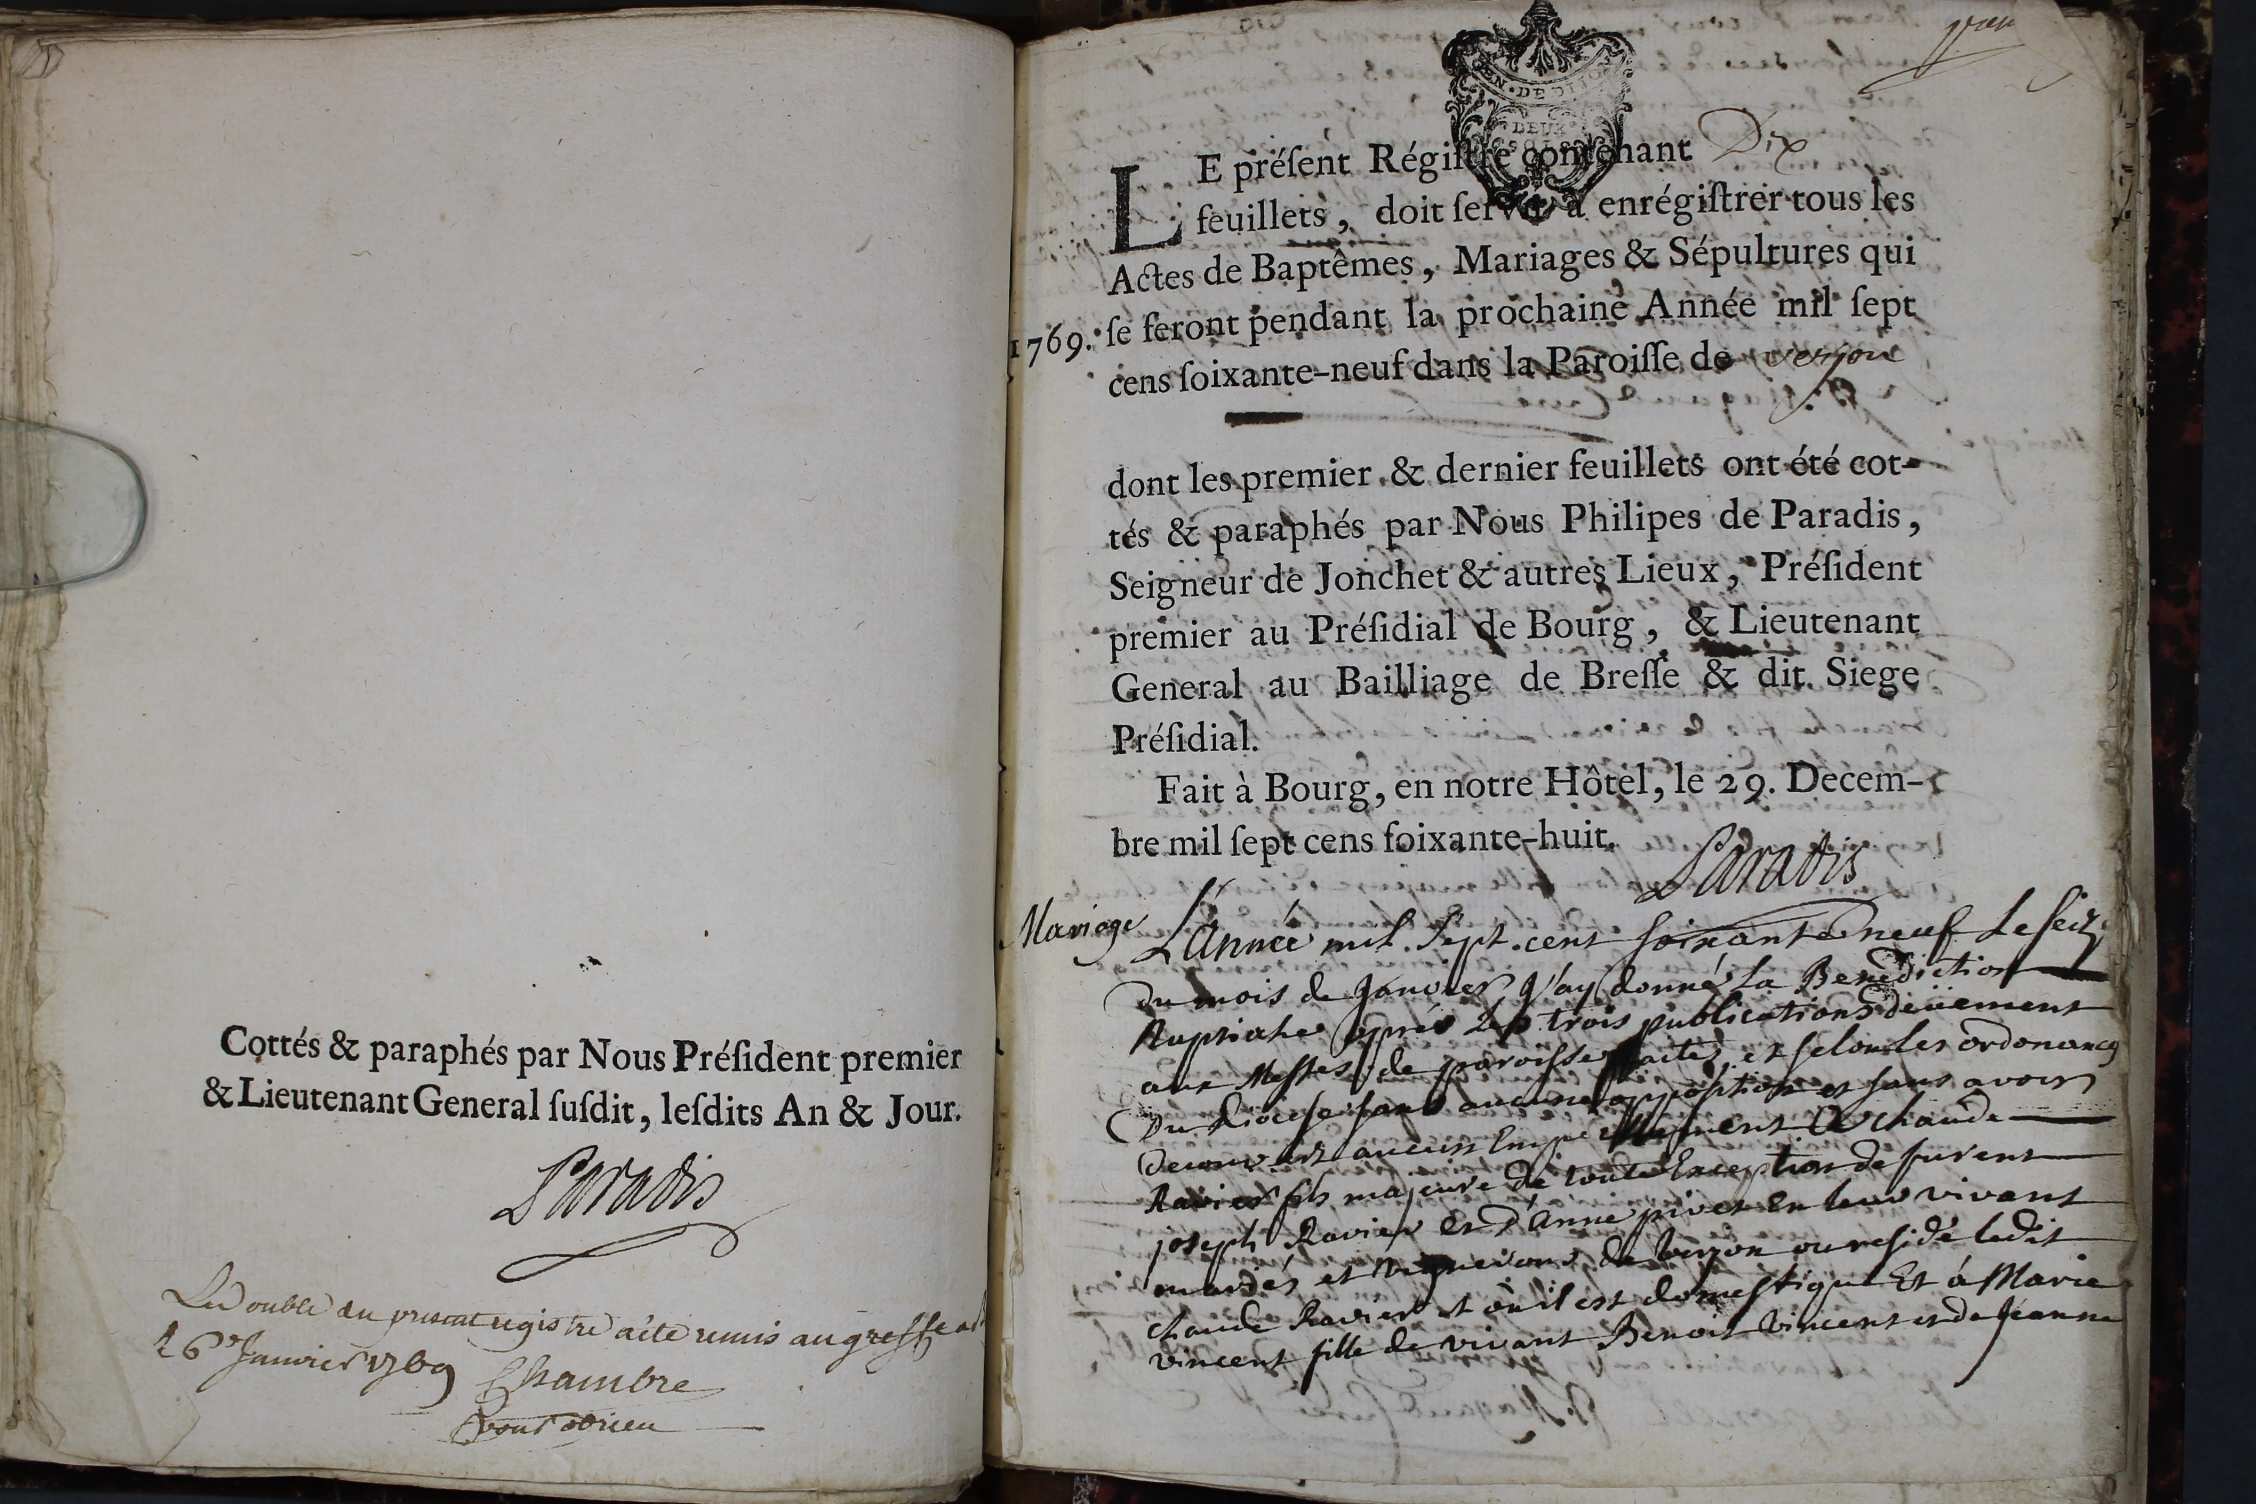 Cottés & paraphés par Nous Préſident premier
& Lieutenant General ſuſdit, leſdits An & Jour.
Paradis
Le double du present registre a été remis au greffe
16e Janvier 1769 Chambre
pour
GEN · DE DIJON
DEUX
SOLS
LE préſent Régiſtre contenant Dix
feuillets, doit ſervir à enrégiſtrer tous les
Actes de Baptêmes, Mariages & Sépultures qui
1769. ſe feront pendant la prochaine Année mil ſept
cens ſoixante-neuf dans la Paroiſſe de verjon
dont les premier & dernier feuillets ont été cot-
tés & paraphés par Nous Philipes de Paradis,
Seigneur de Jonchet & autres Lieux, Préſident
premier au Préſidial de Bourg, & Lieutenant
General au Bailliage de Breſſe & dit Siege
Préſidial.
Fait à Bourg, en notre Hôtel, le 29. Decem-
bre mil ſept cens ſoixante-huit.
Paradis
Mariage L'année mil Sept cent soixante neuf Le seiz
du mois de Janvier J'ay donné La Benediction
Nuptiale après les trois publications deüement
aux Messes de paroisse faites et selon les ordonances
Du Diocese sans aucune opposition et sans avoir
decouvert aucun Empechement a claude
Ravier fils majeure de toute Exception de furent
joseph Ravier et d'Anne pivet en leur vivant
mariés et vignerons de verjon ou reside ledit
claude Ravier et où il est domestique Et à Marie
vincent fille de vivant Benoit vincent et de Jeanne